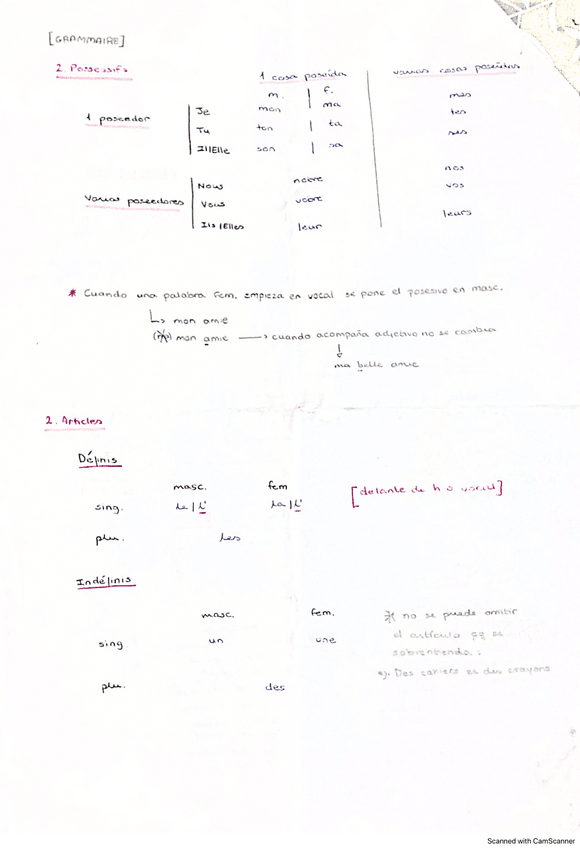 [GRAMMAIRE]
2. Possessifs
1 casa poseída
varias cosas poseídas
m. | f.
1 poseedor
Je mon | ma mes
Tu ton | ta tes
Il/Elle son | sa ses
Varios poseedores
Nous notre nos
Vous votre vos
Ils/Elles leur leurs
* Cuando una palabra fem. empieza en vocal se pone el posesivo en masc.
↳ mon amie
mon amie → cuando acompaña adjetivo no se cambia
↓
ma belle amie
2. Articles
Définis
masc. fem
sing. le | l' la | l' [delante de h o vocal]
plu. les
Indéfinis
masc. fem.
sing un une
plu. des
* no se puede omitir
el artículo qq se
sobrentienda.
ej. Des cahiers et des crayons
Scanned with CamScanner